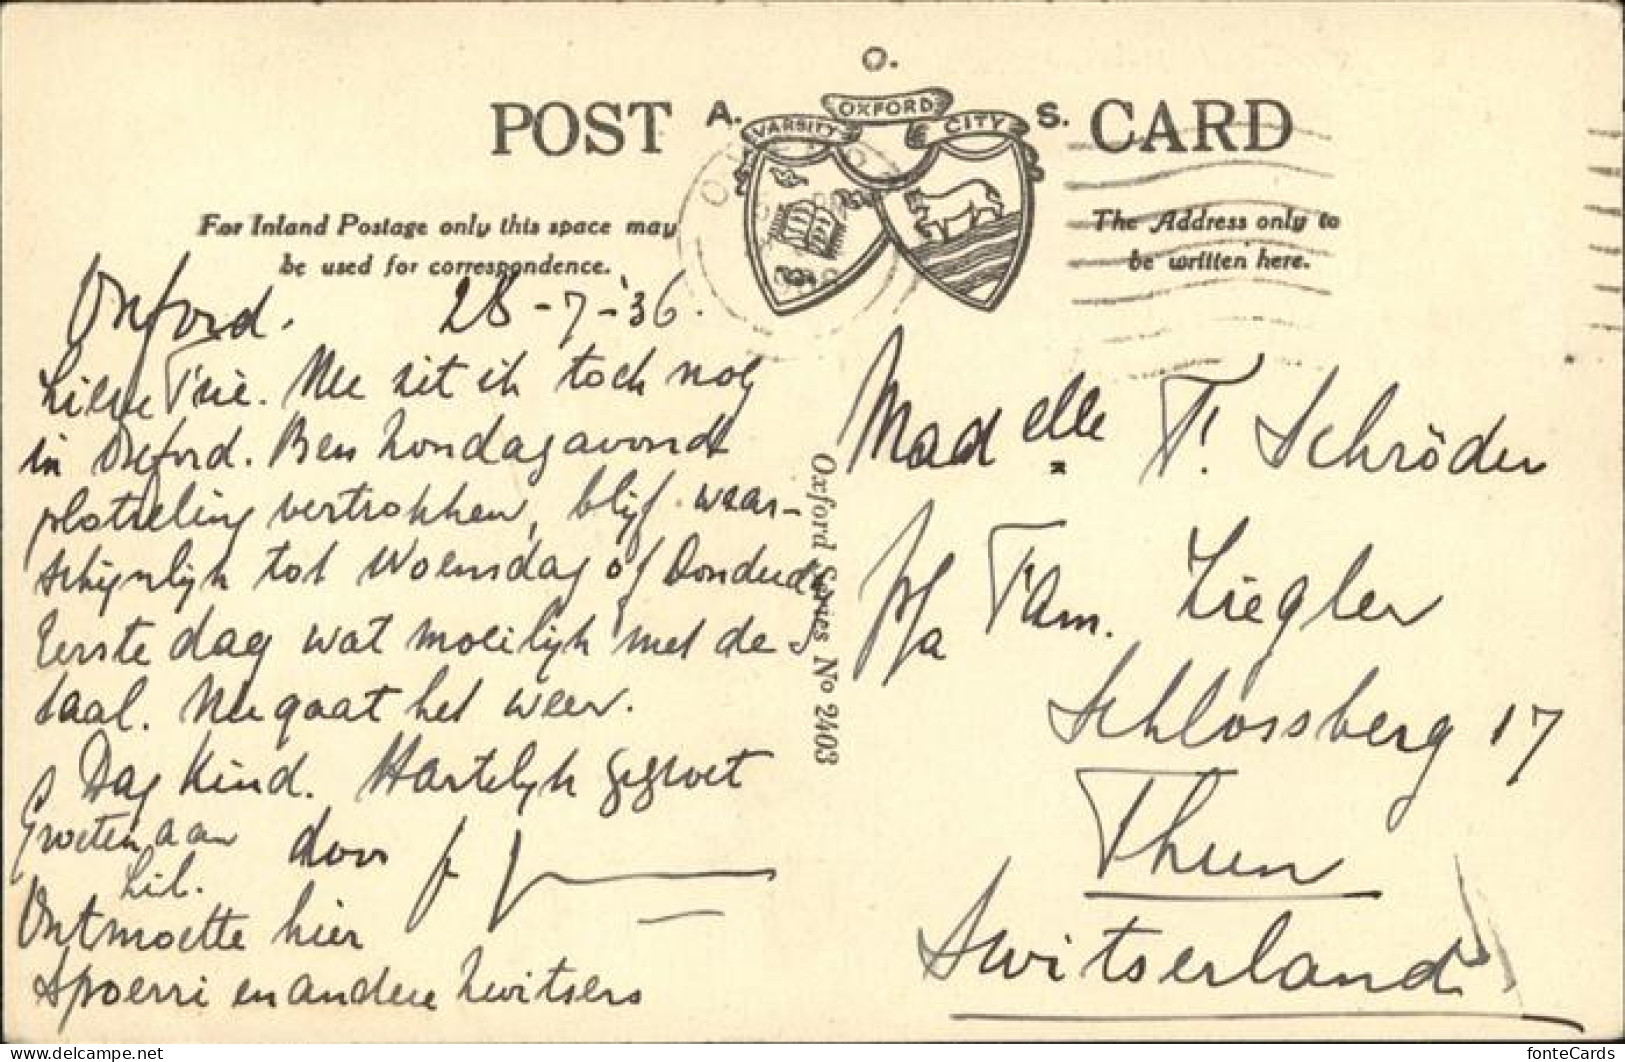 POST CARD
A. O. S.
VARSITY OXFORD CITY
For Inland Postage only this space may
be used for correspondence.
The Address only to
be written here.
Oxford. 28-7-'36.
Lieve Trie. Nu zit ik toch nog
in Oxford. Ben Zondagavondt
plotseling vertrokken, blijf waar-
schijnlijk tot Woensdag of Donderd
Eerste dag wat moeilijk met de
taal. Nu gaat het weer.
Dag Kind. Hartelijk gegroet
door
Groeten aan
Lil.
Ontmoette hier
Spoerri en andere Zwitsers
Oxford Series No 2403
Madelle T. Schröder
p/a Fam. Ziegler
Schlossberg 17
Thun
Switserland
fonteCards